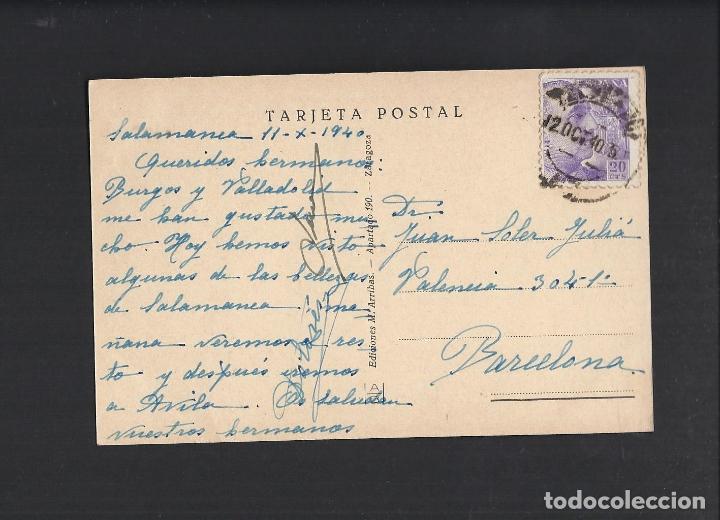 TARJETA POSTAL
Salamanca 11-X-1940
Queridos hermanos:
Burgos y Valladolid
me han gustado mu-
cho. Hoy hemos visto
algunas de las bellezas
de Salamanca, ma-
ñana veremos o res-
to y después iremos
a Avila. Os saludan
vuestros hermanos
Ediciones M. Arribas. — Apartado 190. — Zaragoza
12 OCT 40
20
CTS
Dr.
Juan Soler Juliá
Valencia 304 1º
Barcelona
todocoleccion.net